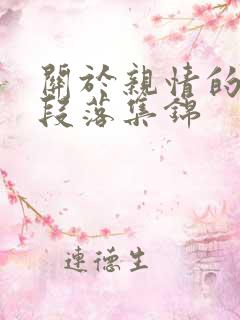 關於親情的
段落集錦
連德生